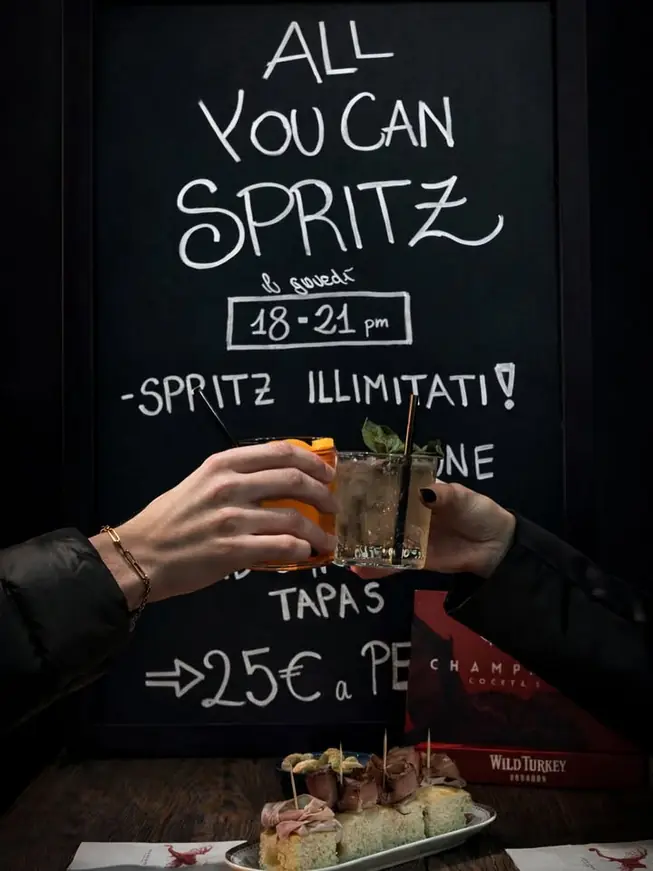 ALL
YOU CAN
SPRITZ
il giovedì
18-21 pm
-SPRITZ ILLIMITATI!
TAPAS
⇒25€ a PE
CHAMP
WILD TURKEY
BOURBON